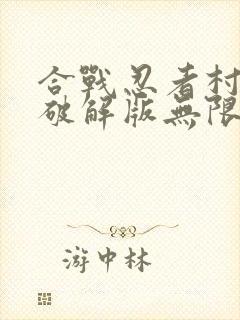 合戰忍者村
破解版無限
游中林